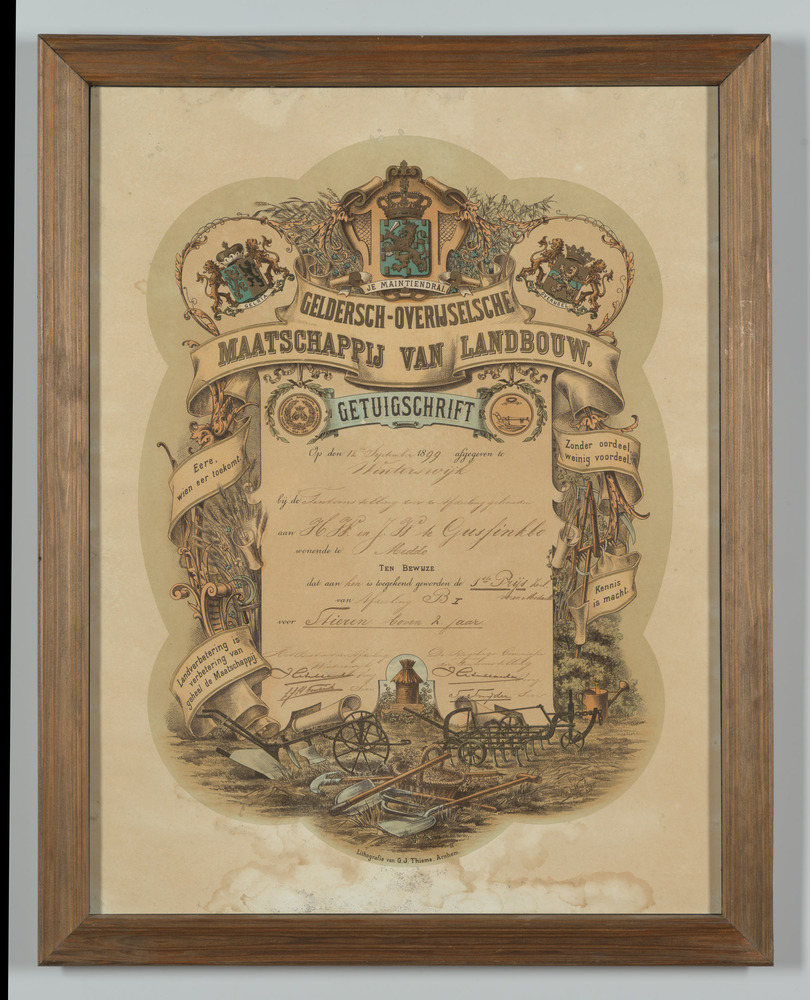 JE MAINTIENDRAI
GELRIA
OVERIJSEL
GELDERSCH-OVERIJSELSCHE
MAATSCHAPPIJ VAN LANDBOUW.
GETUIGSCHRIFT
Eere,
wien eer toekomt.
Zonder oordeel,
weinig voordeel.
Op den 14 September 1899 afgegeven te
Winterswijk
bij de
aan H.W. en J.W. te Gussinklo
wonende te Meddo
TEN BEWIJZE
dat aan hen is toegekend geworden de 1e Prijs
van Afdeeling B I
voor Stieren boven 2 jaar
Kennis
is macht.
Landverbetering is
verbetering van
geheel de Maatschappij
Lithografie van G.J. Thieme, Arnhem.